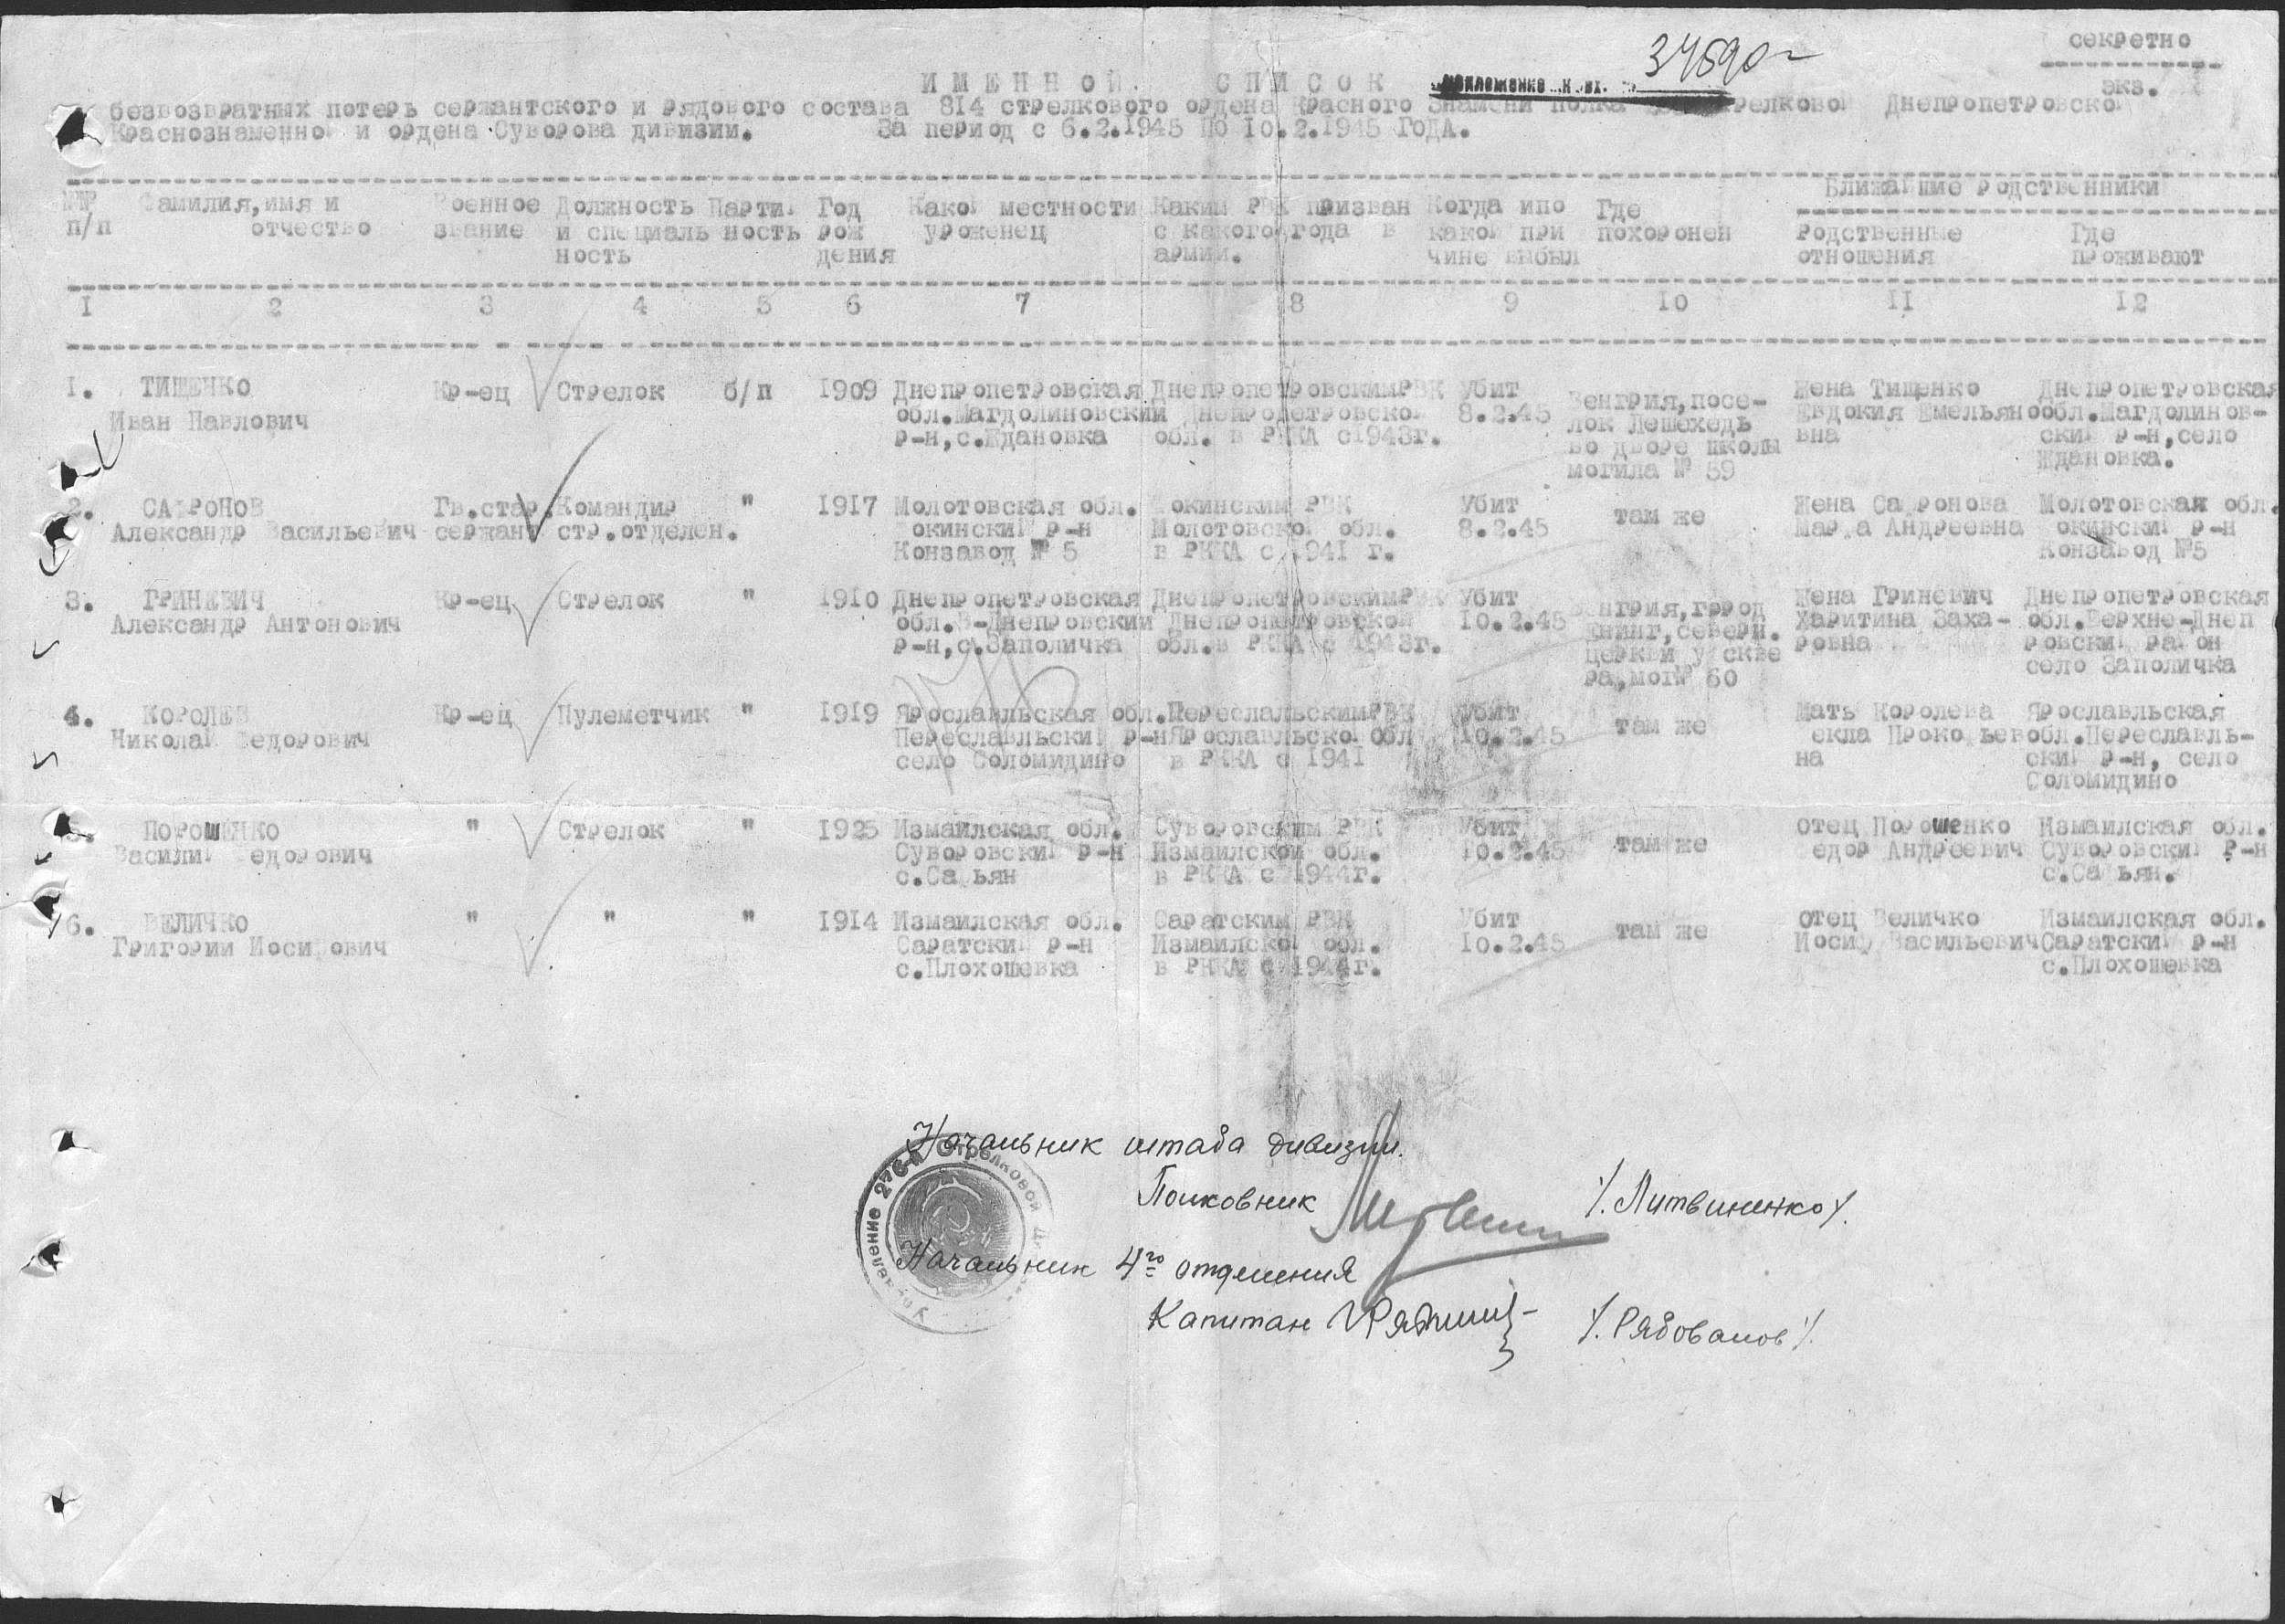 секретно
34690
экз.
ИМЕННОЙ СПИСОК
безвозвратных потерь сержантского и рядового состава 814 стрелкового ордена Красного Знамени полка стрелковой Днепропетровской
Краснознаменной и ордена Суворова дивизии. За период с 6.2.1945 по 10.2.1945 ГОДА.
№№ п/п
Фамилия, имя и отчество
Военное звание
Должность и специаль ность
Парти ность
Год рож дения
Какой местности уроженец
Каким РВК призван с какого года в армии.
Когда и по какой при чине выбыл
Где похоронен
Ближайшие родственники
Родственные отношения
Где проживают
1 2 3 4 5 6 7 8 9 10 11 12
1. ТИЩЕНКО Кр-ец Стрелок б/п 1909 Днепропетровская Днепропетровским РВК Убит Венгрия, посе- Жена Тищенко Днепропетровская
Иван Павлович обл.Магдолиновский Днепропетровской 8.2.45 лок Лешехедь Евдокия Емельяно обл.Магдолинов-
р-н,с.Ждановка обл. в РККА с 1943г. во дворе школы вна ский р-н,село
могила № 59 Ждановка.
2. САФРОНОВ Гв.стар. Командир " 1917 Молотовская обл. РВК Убит там же Жена Сафронова Молотовская обл.
Александр Васильевич сержант стр.отделен. окинский р-н Молотовской обл. 8.2.45 Марфа Андреевна окинский р-н
Конзавод № 5 в РККА с 1941 г. Конзавод №5
3. ГРИНЕВИЧ Кр-ец Стрелок " 1910 Днепропетровская Днепропетровским РВК Убит Венгрия, город Жена Гриневич Днепропетровская
Александр Антонович обл.В-Днепровский Днепропетровской 10.2.45 северн. Харитина Заха- обл.Верхне-Днеп
р-н,с.Заполичка обл.в РККА с 1943г. церкви у скве ровна ровский район
ра,мог№ 60 село Заполичка
4. КОРОЛЕВ Кр-ец Пулеметчик " 1919 Ярославльская обл. Переславльским РВК Убит там же Мать Королева Ярославльская
Николай Федорович Переславльский р-н Ярославльской обл 10.2.45 Фекла Прокофьев обл.Переславль-
село Соломидино в РККА с 1941 на ский р-н, село
Соломидино
5. ПОРОШЕНКО " Стрелок " 1925 Измаилская обл. Суворовским РВК Убит там же отец Порошенко Измаилская обл.
Василий Федорович Суворовский р-н Измаилской обл. 10.2.45 Федор Андреевич Суворовский р-н
с.Сафьян в РККА с 1944г. с.Сафьян.
6. ВЕЛИЧКО " " " 1914 Измаилская обл. Саратским РВК Убит там же отец Величко Измаилская обл.
Григорий Иосифович Саратский р-н Измаилской обл. 10.2.45 Иосиф Васильевич Саратский р-н
с.Плохошевка в РККА с 1944г. с.Плохошевка
Начальник штаба дивизии.
Полковник /. Литвиненко /.
Начальник 4го отделения
Капитан /. Рябовалов /.
Управление 276-й Стрелковой